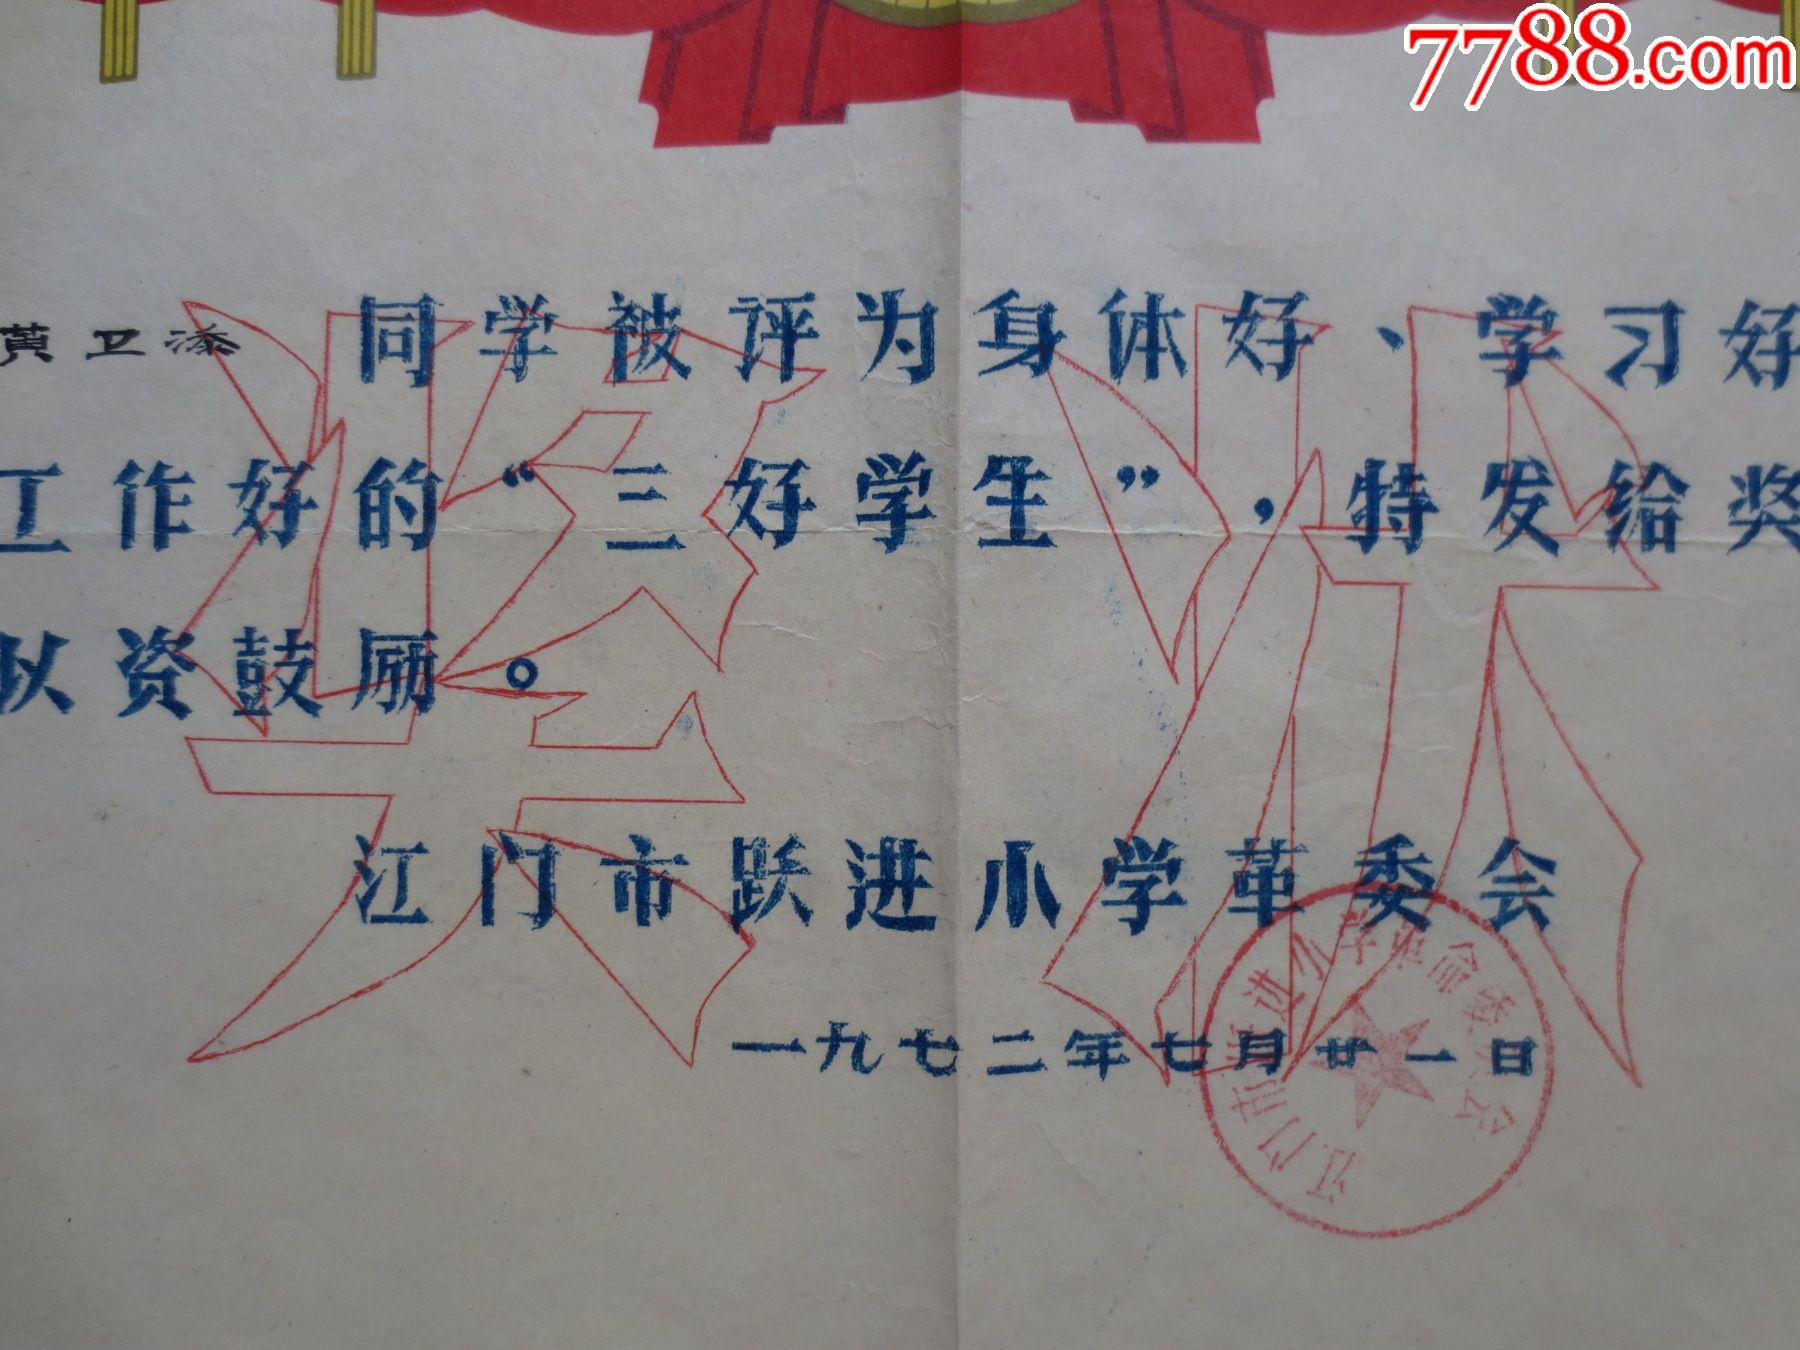 7788.com
黄卫添同学被评为身体好、学习好
工作好的“三好学生”,特发给奖
以资鼓励。
奖状
江门市跃进小学革委会
一九七二年七月廿一日
江门市跃进小学革命委员会